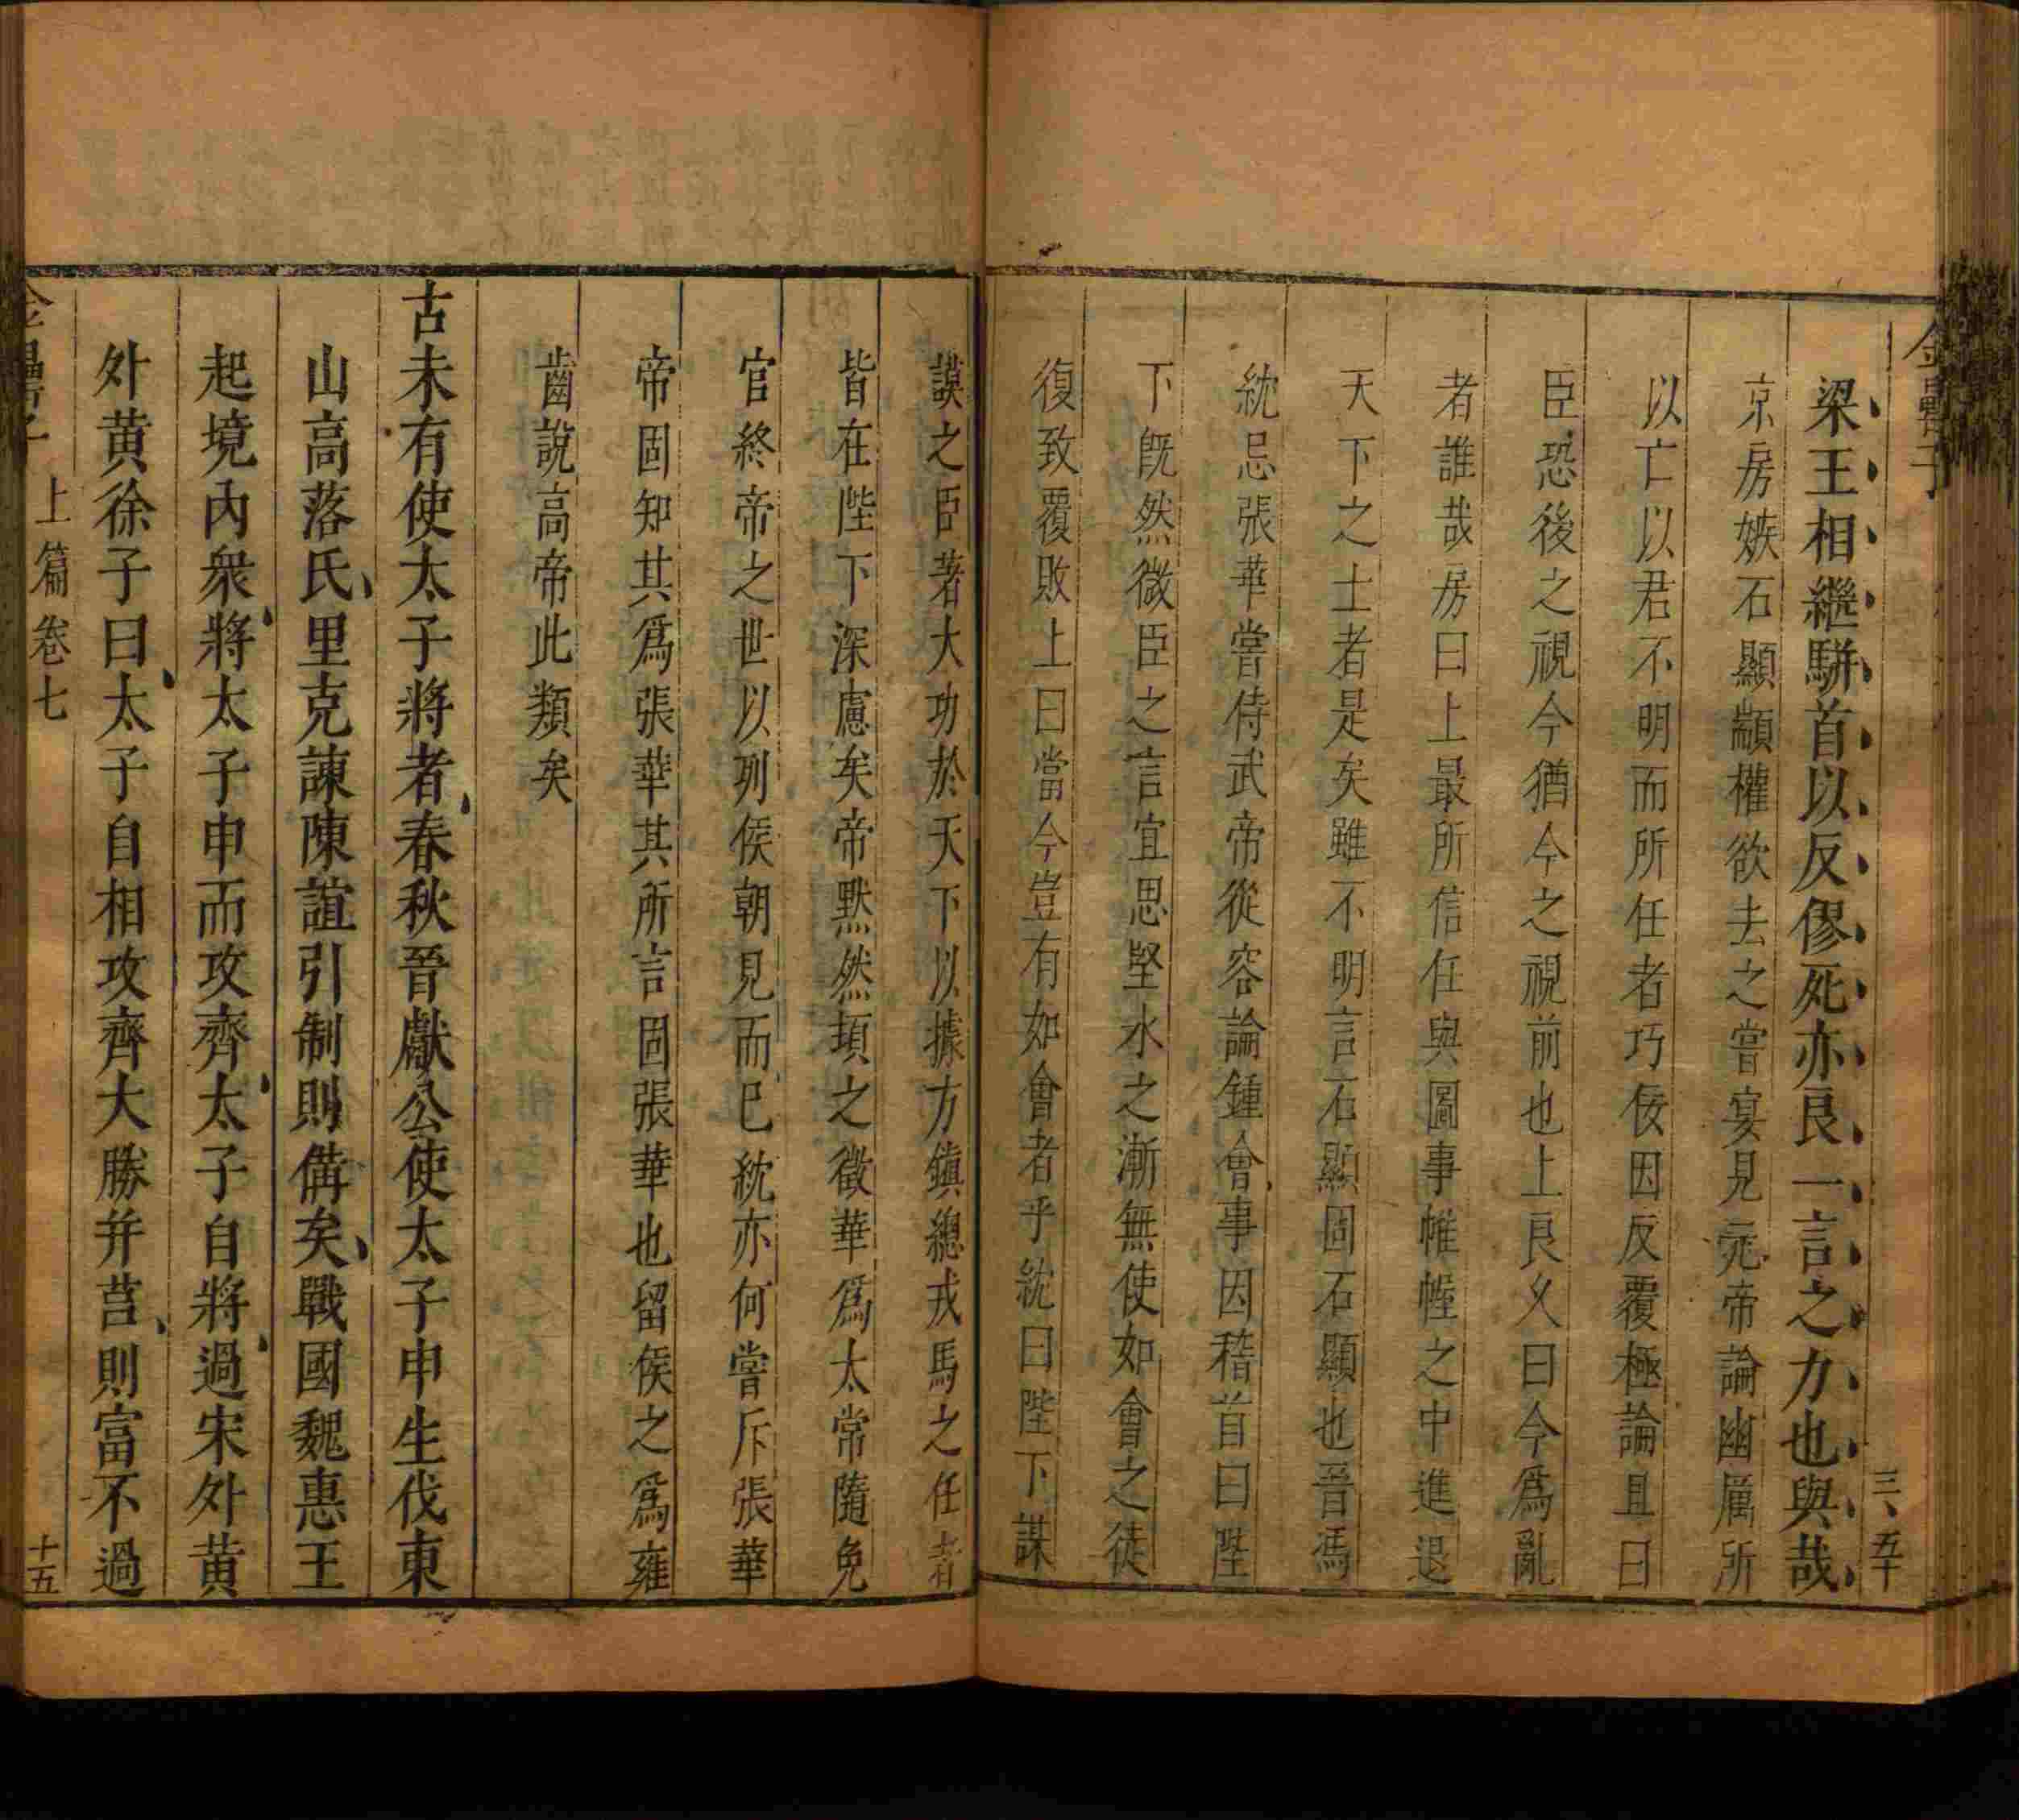 金罍子
三、五十
梁王相繼駢首以反僇死亦良一言之力也與哉
京房嫉石顯顓權欲去之嘗宴見元帝論幽厲所
以亡以君不明而所任者巧佞因反覆極論且曰
臣恐後之視今猶今之視前也上良乆曰今爲亂
者誰哉房曰上最所信任與圖事帷幄之中進退
天下之士者是矣雖不明言石顯固石顯也晉馮
紞忌張華嘗侍武帝從容論鍾會事因稽首曰陛
下旣然微臣之言宜思堅水之漸無使如會之徒
復致覆敗上曰當今豈有如會者乎紞曰陛下謀
謨之臣著大功於天下以據方鎮總戎馬之任者
皆在陛下深慮矣帝默然頃之徵華爲太常隨免
官終帝之世以列侯朝見而已紞亦何嘗斥張華
帝固知其爲張華其所言固張華也留侯之爲雍
齒說高帝此類矣
古未有使太子將者春秋晉獻公使太子申生伐東
山高落氏里克諫陳誼引制則備矣戰國魏惠王
起境內衆將太子申而攻齊太子自將過宋外黄
外黄徐子曰太子自相攻齊大勝并莒則富不過
金罍子 上篇卷七 十五